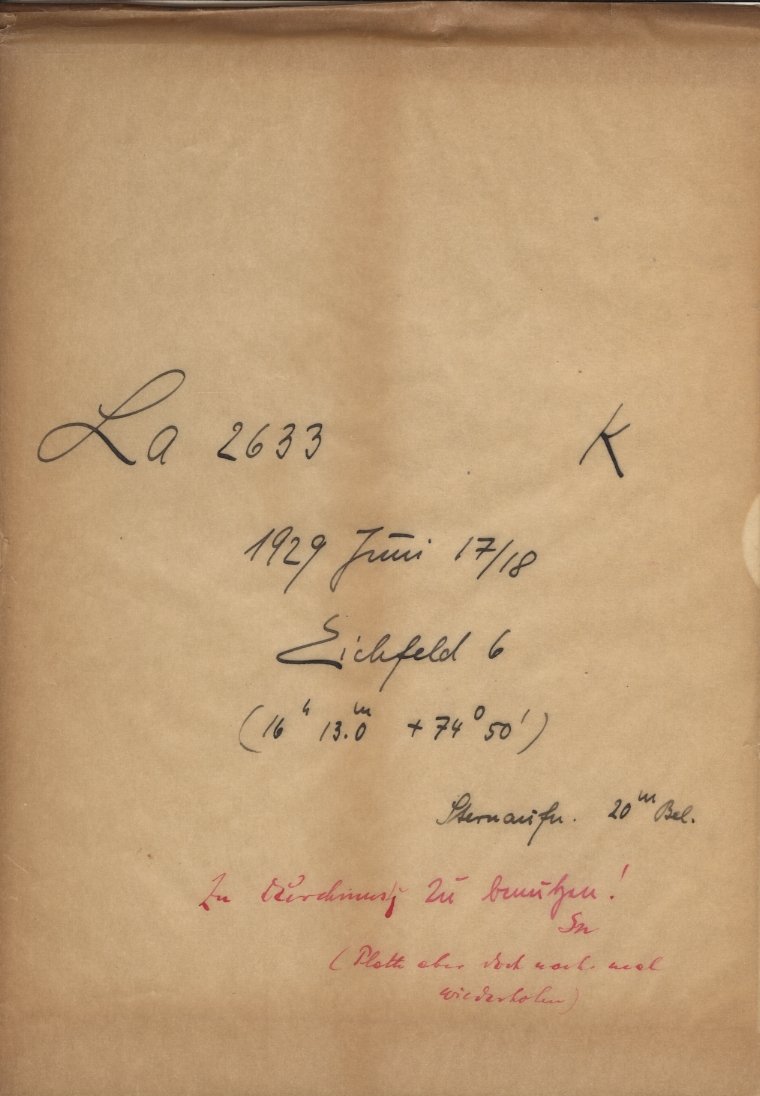 La 2633 K
1929 Juni 17/18
Eichfeld 6
(16ʰ 13.0ᵐ +74⁰ 50')
Sternaufn. 20ᵐ Bel.
Zu zu benutzen!
Sn
(Platte aber doch noch mal
wiederholen)